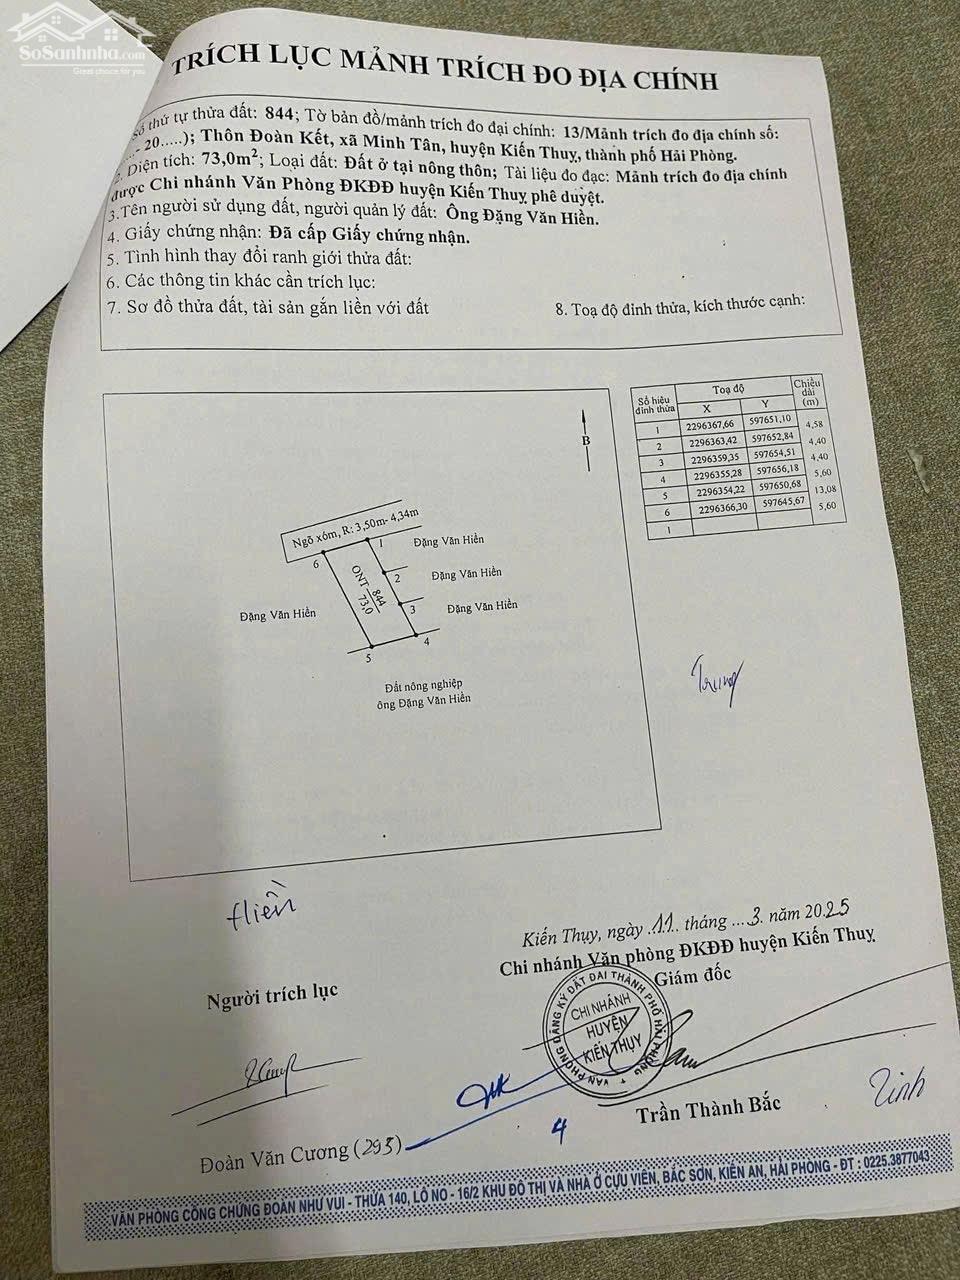 SoSanhnha.com
Great choice for you
TRÍCH LỤC MẢNH TRÍCH ĐO ĐỊA CHÍNH
Số thứ tự thửa đất: 844; Tờ bản đồ/mảnh trích đo đại chính: 13/Mảnh trích đo địa chính số:
- 20.....); Thôn Đoàn Kết, xã Minh Tân, huyện Kiến Thuỵ, thành phố Hải Phòng.
2. Diện tích: 73,0m²; Loại đất: Đất ở tại nông thôn; Tài liệu đo đạc: Mảnh trích đo địa chính
được Chi nhánh Văn Phòng ĐKĐĐ huyện Kiến Thuỵ phê duyệt.
3.Tên người sử dụng đất, người quản lý đất: Ông Đặng Văn Hiền.
4. Giấy chứng nhận: Đã cấp Giấy chứng nhận.
5. Tình hình thay đổi ranh giới thửa đất:
6. Các thông tin khác cần trích lục:
7. Sơ đồ thửa đất, tài sản gắn liền với đất
8. Toạ độ đỉnh thửa, kích thước cạnh:
Số hiệu đỉnh thửa Toạ độ Chiều dài (m)
X Y
1 2296367,66 597651,10
4,58
2 2296363,42 597652,84
4,40
3 2296359,35 597654,51
4,40
4 2296355,28 597656,18
5,60
5 2296354,22 597650,68
13,08
6 2296366,30 597645,67
5,60
1
B
Ngõ xóm, R: 3,50m- 4,34m
6
1
Đặng Văn Hiền
ONT 844
73,0
2
Đặng Văn Hiền
Đặng Văn Hiền
3
Đặng Văn Hiền
4
5
Đất nông nghiệp
ông Đặng Văn Hiền
Trung
Hiền
Kiến Thụy, ngày .11. tháng ...3. năm 2025
Chi nhánh Văn phòng ĐKĐĐ huyện Kiến Thuỵ
Giám đốc
Người trích lục
VĂN PHÒNG ĐĂNG KÝ ĐẤT ĐAI THÀNH PHỐ HẢI PHÒNG
CHI NHÁNH
HUYỆN
KIẾN THỤY
Trần Thành Bắc
Đoàn Văn Cương (293)
4
VĂN PHÒNG CÔNG CHỨNG ĐOÀN NHƯ VUI - THỬA 140, LÔ NO - 16/2 KHU ĐÔ THỊ VÀ NHÀ Ở CỰU VIÊN, BẮC SƠN, KIẾN AN, HẢI PHÒNG - ĐT : 0225.3877043